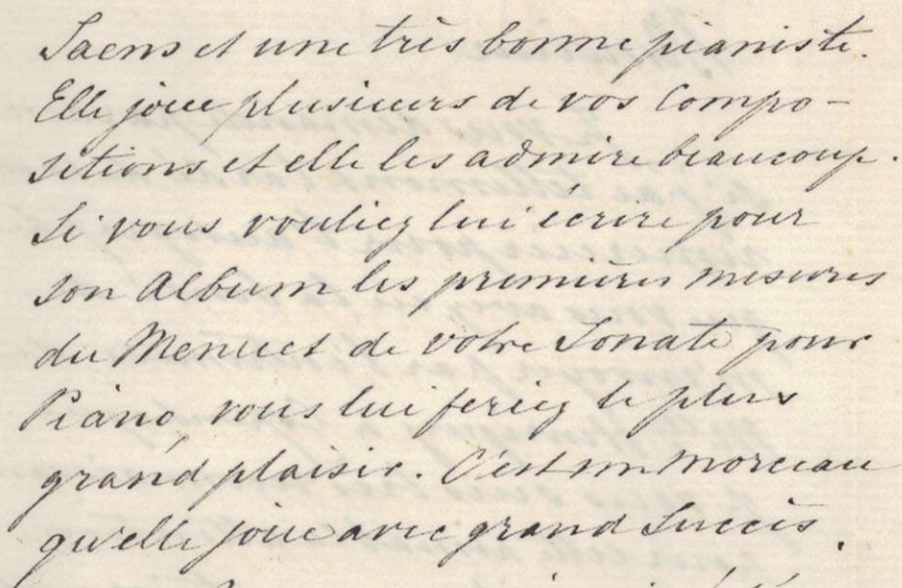 Saens et une très bonne pianiste.
Elle joue plusieurs de vos Compo-
sitions et elle les admire beaucoup.
Si vous vouliez lui ecrire pour
son Album les premieres mesures
du Menuet de votre Sonate pour
Piano, vous lui feriez le plus
grand plaisir. C'est un morceau
qu'elle joue avec grand Succès.